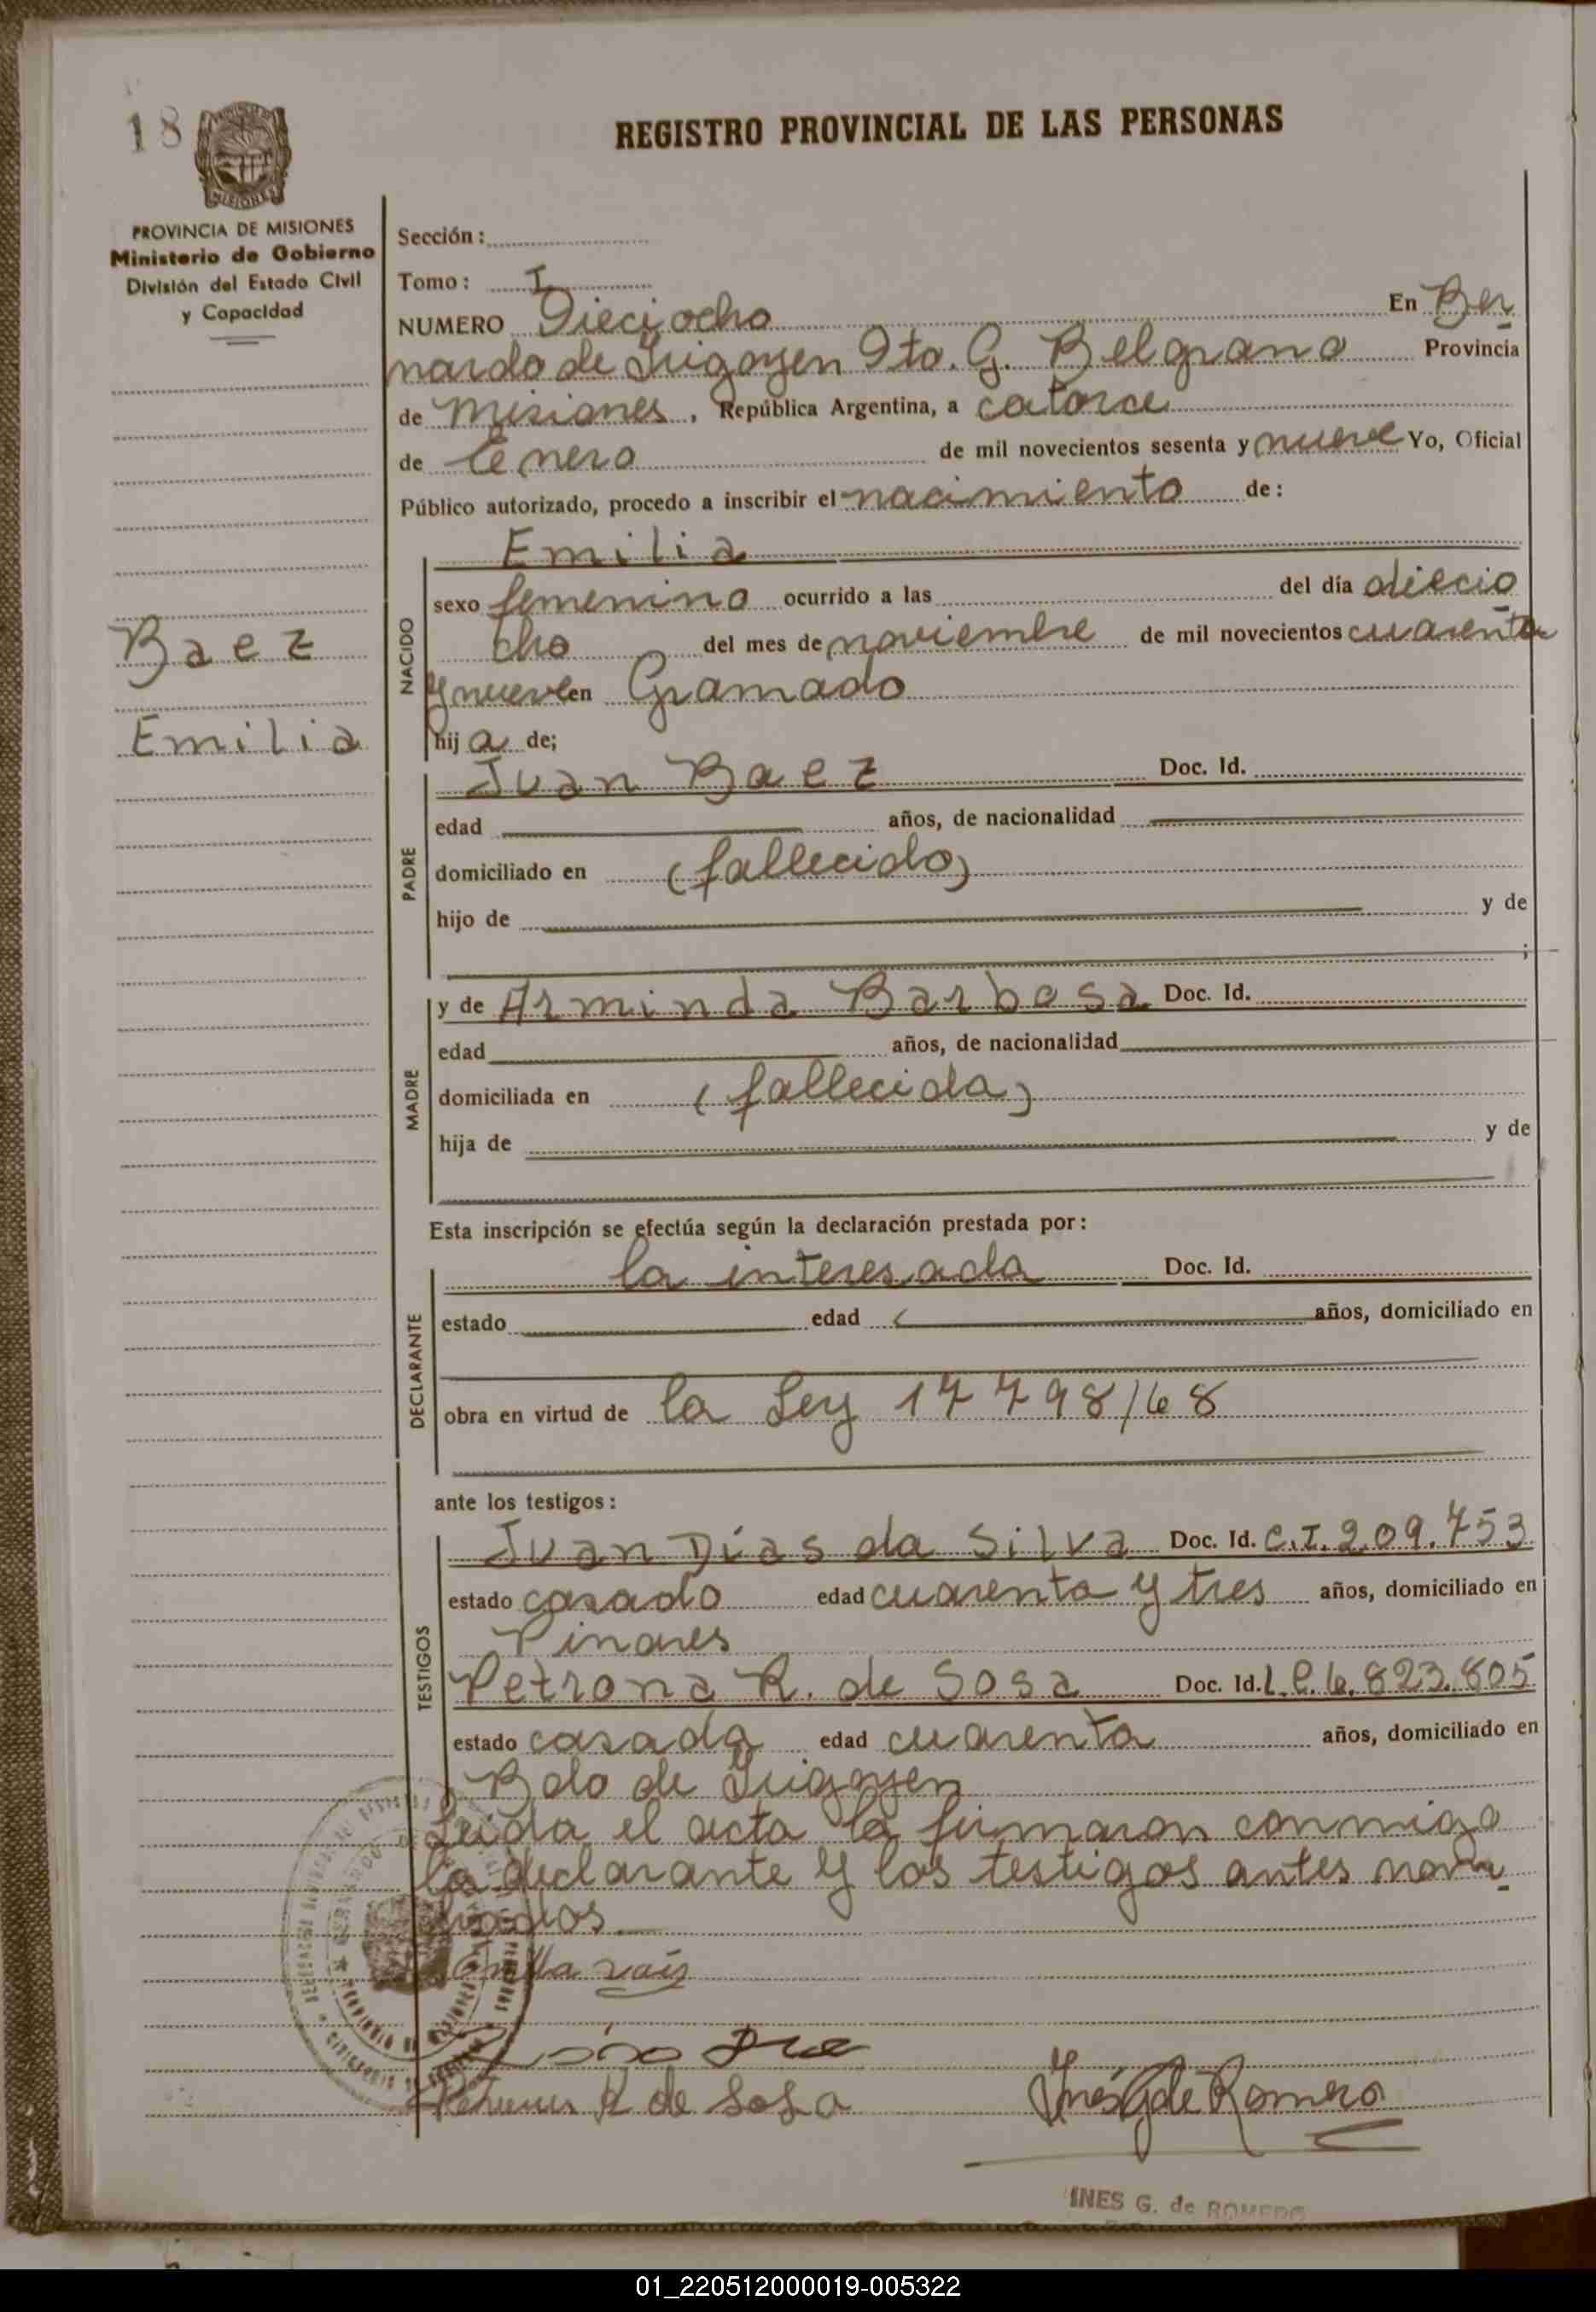 18
REGISTRO PROVINCIAL DE LAS PERSONAS
PROVINCIA DE MISIONES
Ministerio de Gobierno
División del Estado Civil
y Capacidad
Sección:
Tomo: I
NUMERO Dieciocho En Ber
nardo de Irigoyen Dto. G. Belgrano Provincia
de Misiones, República Argentina, a catorce
de Enero de mil novecientos sesenta y nueve Yo, Oficial
Público autorizado, procedo a inscribir el nacimiento de:
Emilia
NACIDO
sexo femenino ocurrido a las del día diecio
cho del mes de noviembre de mil novecientos cuarenta
y nueve en Gramado
hija de;
Baez
Emilia
PADRE
Juan Baez Doc. Id.
edad años, de nacionalidad
domiciliado en (fallecido)
hijo de y de
;
MADRE
y de Arminda Barbosa Doc. Id.
edad años, de nacionalidad
domiciliada en (fallecida)
hija de y de
Esta inscripción se efectúa según la declaración prestada por:
DECLARANTE
la interesada Doc. Id.
estado edad años, domiciliado en
obra en virtud de la Ley 17798/68
ante los testigos:
TESTIGOS
Juan Días da Silva Doc. Id. C.I. 209.753
estado casado edad cuarenta y tres años, domiciliado en
Pinares
Petrona R. de Sosa Doc. Id. L.C. 6.823.805
estado casada edad cuarenta años, domiciliado en
Bdo de Irigoyen
Leida el acta la firmaron conmigo
la declarante y los testigos antes nom
brados.
R de Sosa
Inés G de Romero
INES G. de ROMERO
01_220512000019-005322